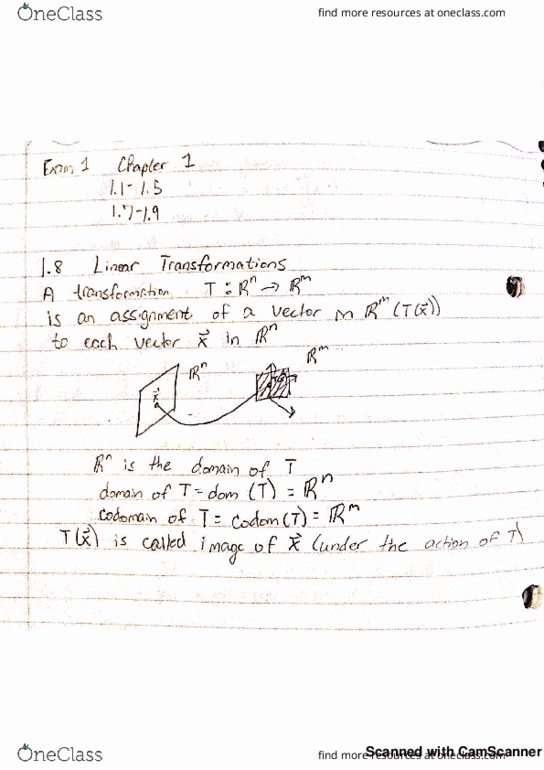 OneClass
find more resources at oneclass.com
Exam 1 Chapter 1
1.1-1.5
1.7-1.9
1.8 Linear Transformations
A transformation T: ℝⁿ → ℝᵐ
is an assignment of a vector in ℝᵐ (T(x⃗))
to each vector x⃗ in ℝⁿ
ℝⁿ ℝᵐ
x⃗
ℝⁿ is the domain of T
domain of T = dom (T) = ℝⁿ
codomain of T = codom(T) = ℝᵐ
T(x⃗) is called image of x⃗ (under the action of T)
OneClass
find more resources at oneclass.com
Scanned with CamScanner